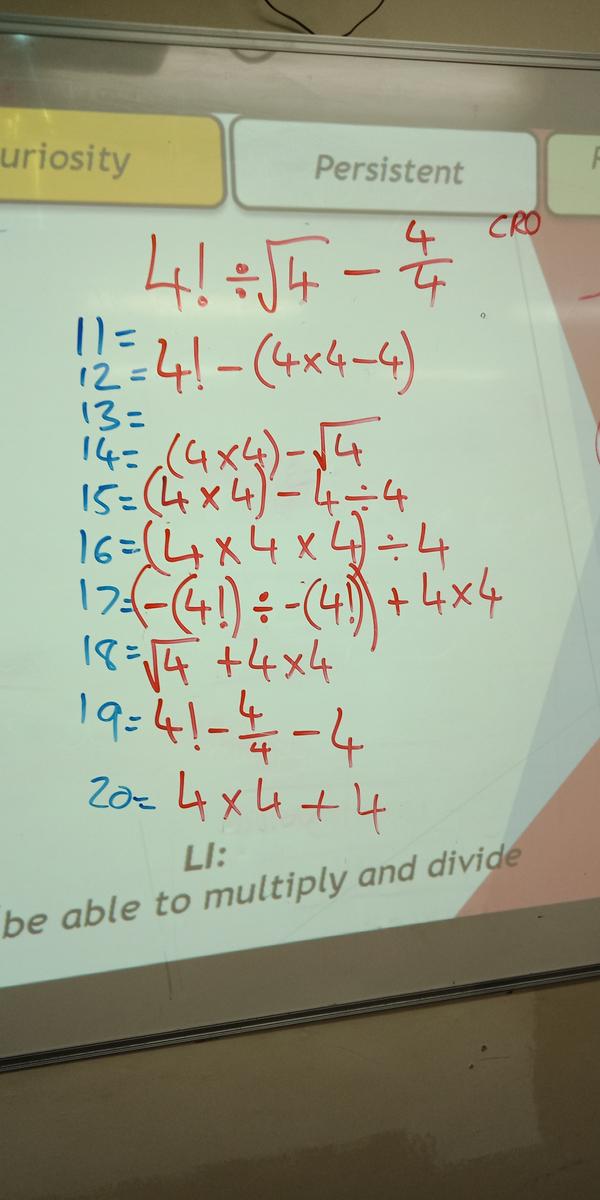 uriosity
Persistent
CRO
4! ÷ √4 − 4/4
11=
12= 4! − (4×4−4)
13=
14= (4×4) − √4
15= (4×4) − 4÷4
16= (4×4×4) ÷ 4
17= (−(4!) ÷ −(4!)) + 4×4
18= √4 + 4×4
19= 4! − 4/4 − 4
20= 4×4+4
LI:
be able to multiply and divide